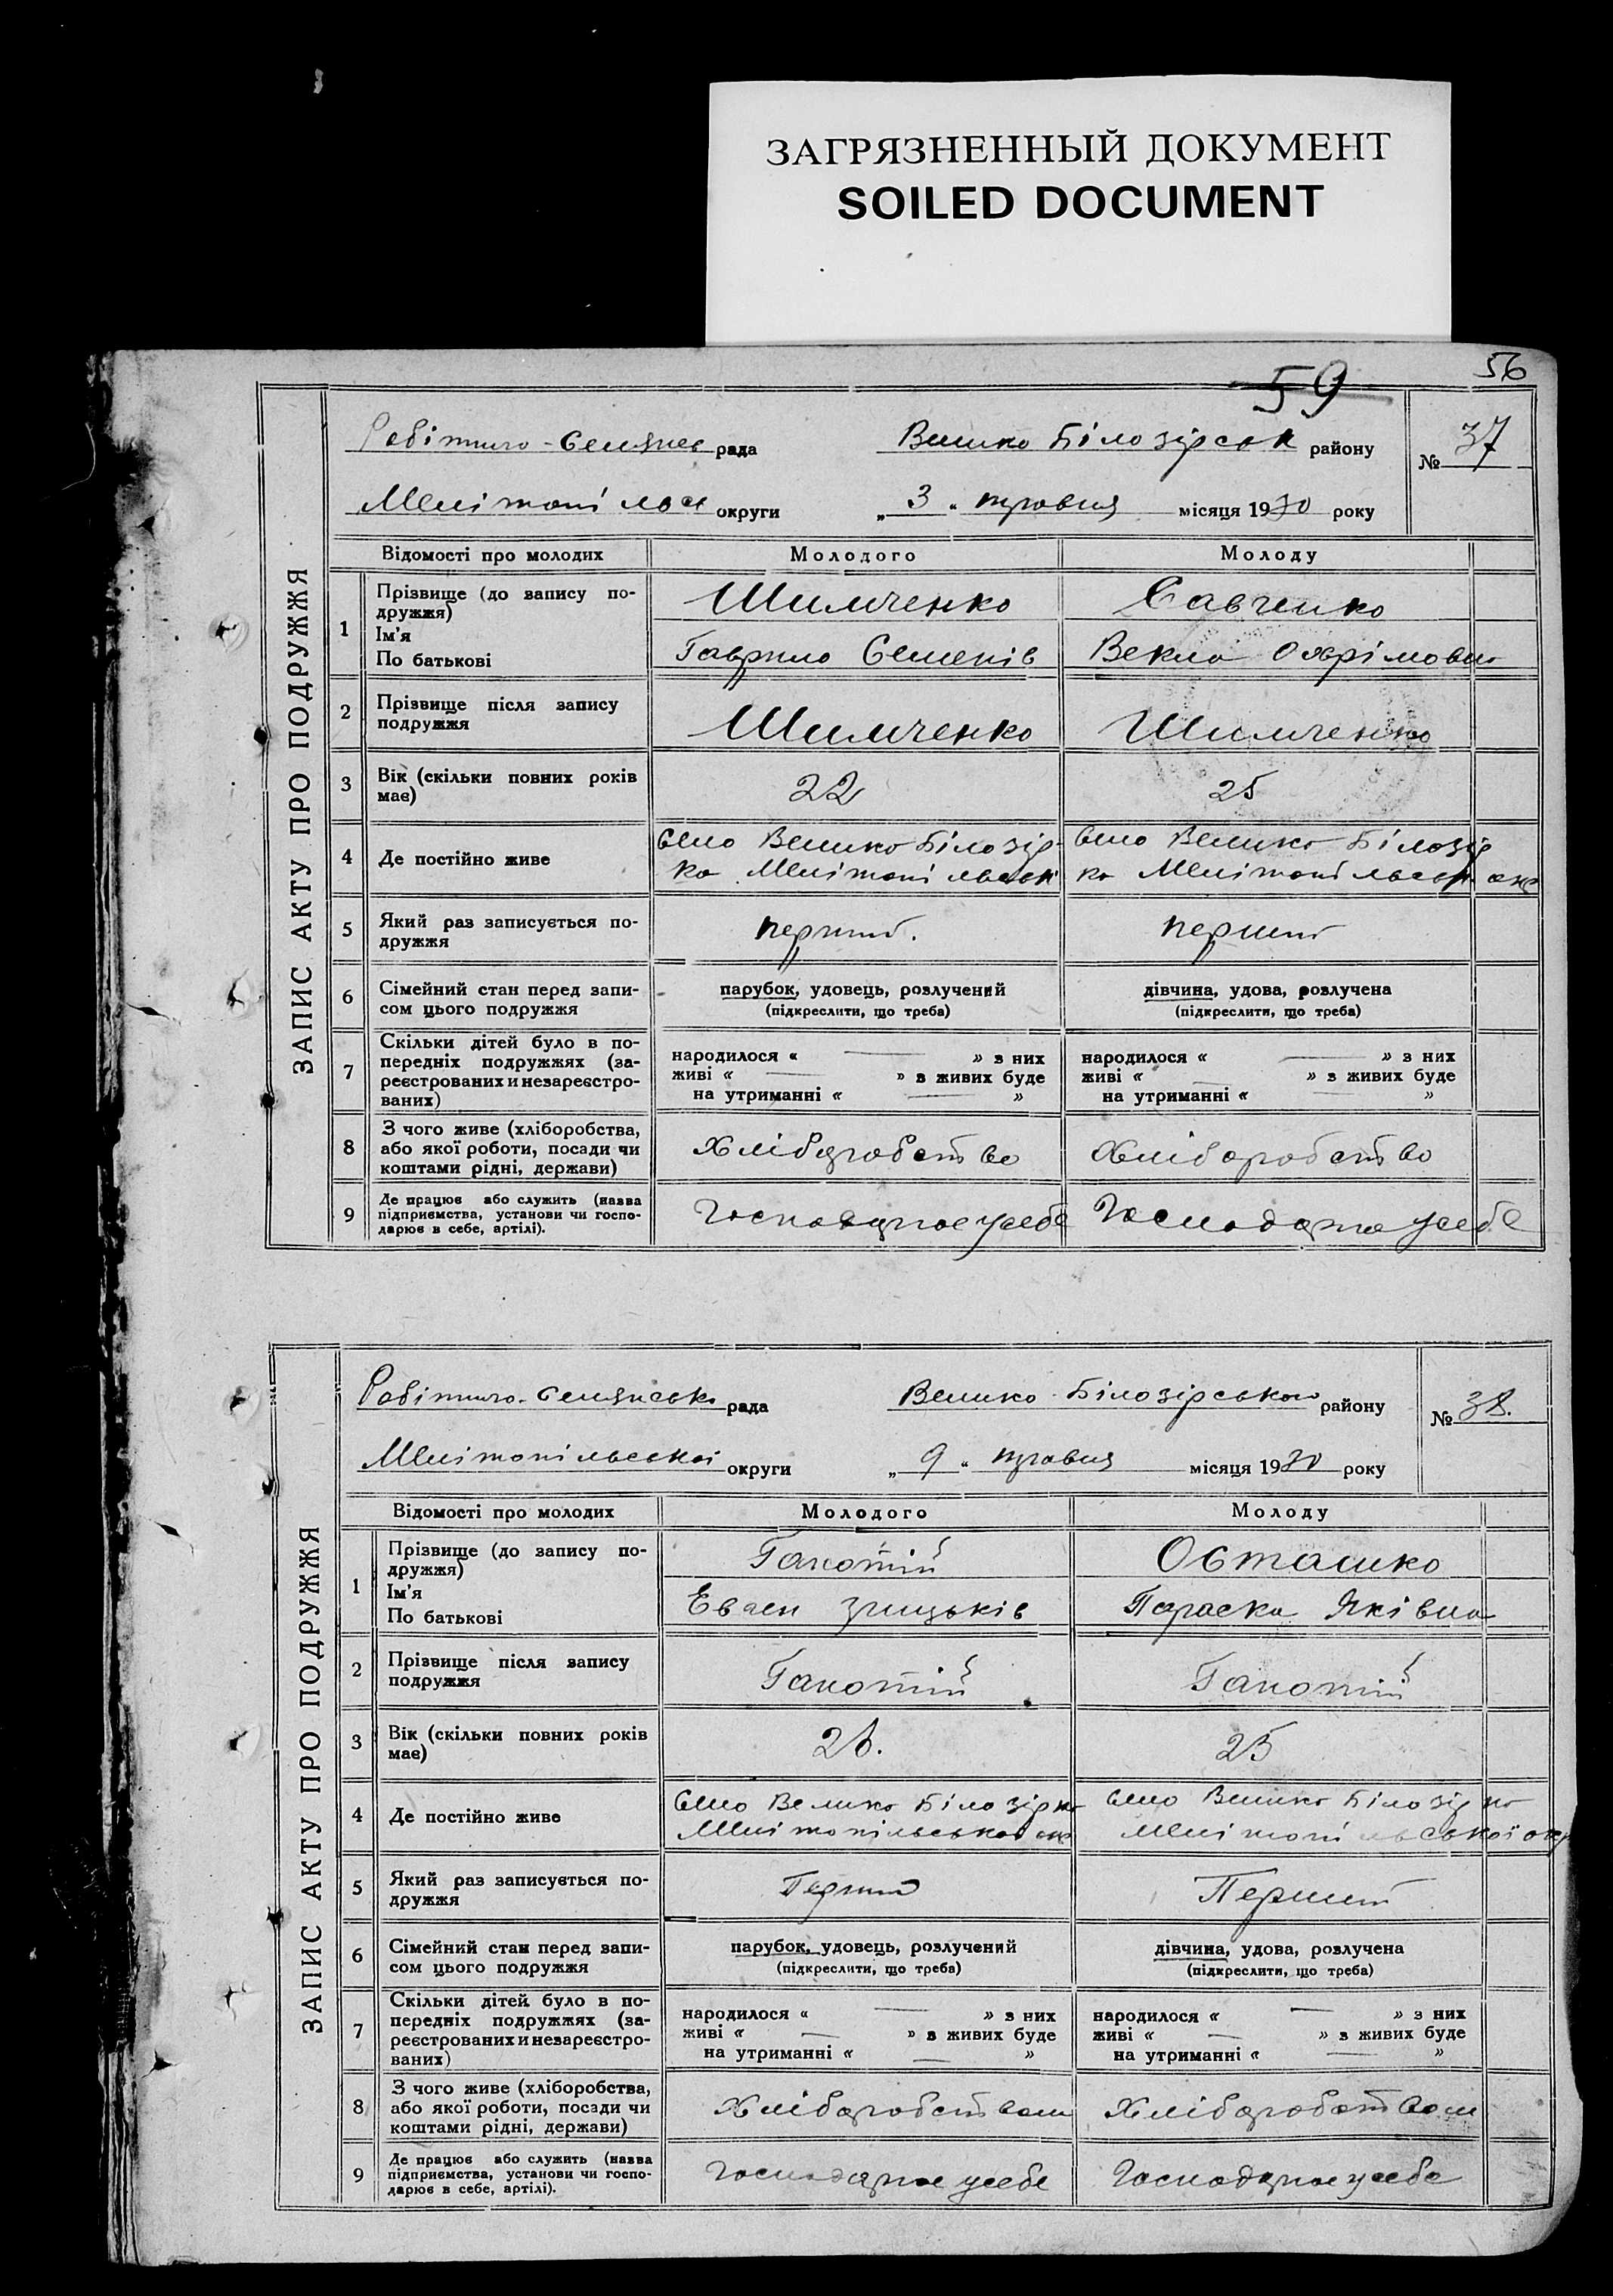 ЗАГРЯЗНЕННЫЙ ДОКУМЕНТ
SOILED DOCUMENT
59
56
ЗАПИС АКТУ ПРО ПОДРУЖЖЯ
Робітничо-Селянсь рада Велико Білозірськ району № 37
Мелітопільсь округи „3" травня місяця 1930 року
Відомості про молодих Молодого Молоду
1 Прізвище (до запису по-
дружжя)
Ім'я
По батькові
Шимченко Савченко
Гаврило Семенів Векла Охрімовна
2 Прізвище після запису
подружжя
Шимченко Шимченко
3 Вік (скільки повних років
має)
22 25
4 Де постійно живе
село Велико Білозір- село Велико Білозір
ка Мелітопільськ ка Мелітопільськ окр
5 Який раз записується по-
дружжя
перший. перший
6 Сімейний стан перед запи-
сом цього подружжя
парубок, удовець, розлучений дівчина, удова, розлучена
(підкреслити, що треба) (підкреслити, що треба)
7 Скільки дітей було в по-
передніх подружжях (за-
реєстрованих и незареєстро-
ваних)
народилося « — » з них народилося « — » з них
живі « — » з живих буде живі « — » з живих буде
на утриманні « — » на утриманні « — »
8 З чого живе (хліборобства,
або якої роботи, посади чи
коштами рідні, держави)
Хліборобство Хліборобство
9 Де працює або служить (назва
підприємства, установи чи госпо-
дарює в себе, артілі).
Господарює усебе Господарює усебе
ЗАПИС АКТУ ПРО ПОДРУЖЖЯ
Робітничо-Селянська рада Велико-Білозірського району № 38.
Мелітопільської округи „9" травня місяця 1930 року
Відомості про молодих Молодого Молоду
1 Прізвище (до запису по-
дружжя)
Ім'я
По батькові
Осташко
Грицьків Параска Яківна
2 Прізвище після запису
подружжя
3 Вік (скільки повних років
має)
25
4 Де постійно живе
село Велико Білозірка село Велико Білозірка
Мелітопільської окр Мелітопільської окр
5 Який раз записується по-
дружжя
Перший Перший
6 Сімейний стан перед запи-
сом цього подружжя
парубок, удовець, розлучений дівчина, удова, розлучена
(підкреслити, що треба) (підкреслити, що треба)
7 Скільки дітей було в по-
передніх подружжях (за-
реєстрованих и незареєстро-
ваних)
народилося « — » з них народилося « — » з них
живі « — » з живих буде живі « — » з живих буде
на утриманні « — » на утриманні « — »
8 З чого живе (хліборобства,
або якої роботи, посади чи
коштами рідні, держави)
Хліборобством Хліборобством
9 Де працює або служить (назва
підприємства, установи чи госпо-
дарює в себе, артілі).
Господарює усебе Господарює усебе